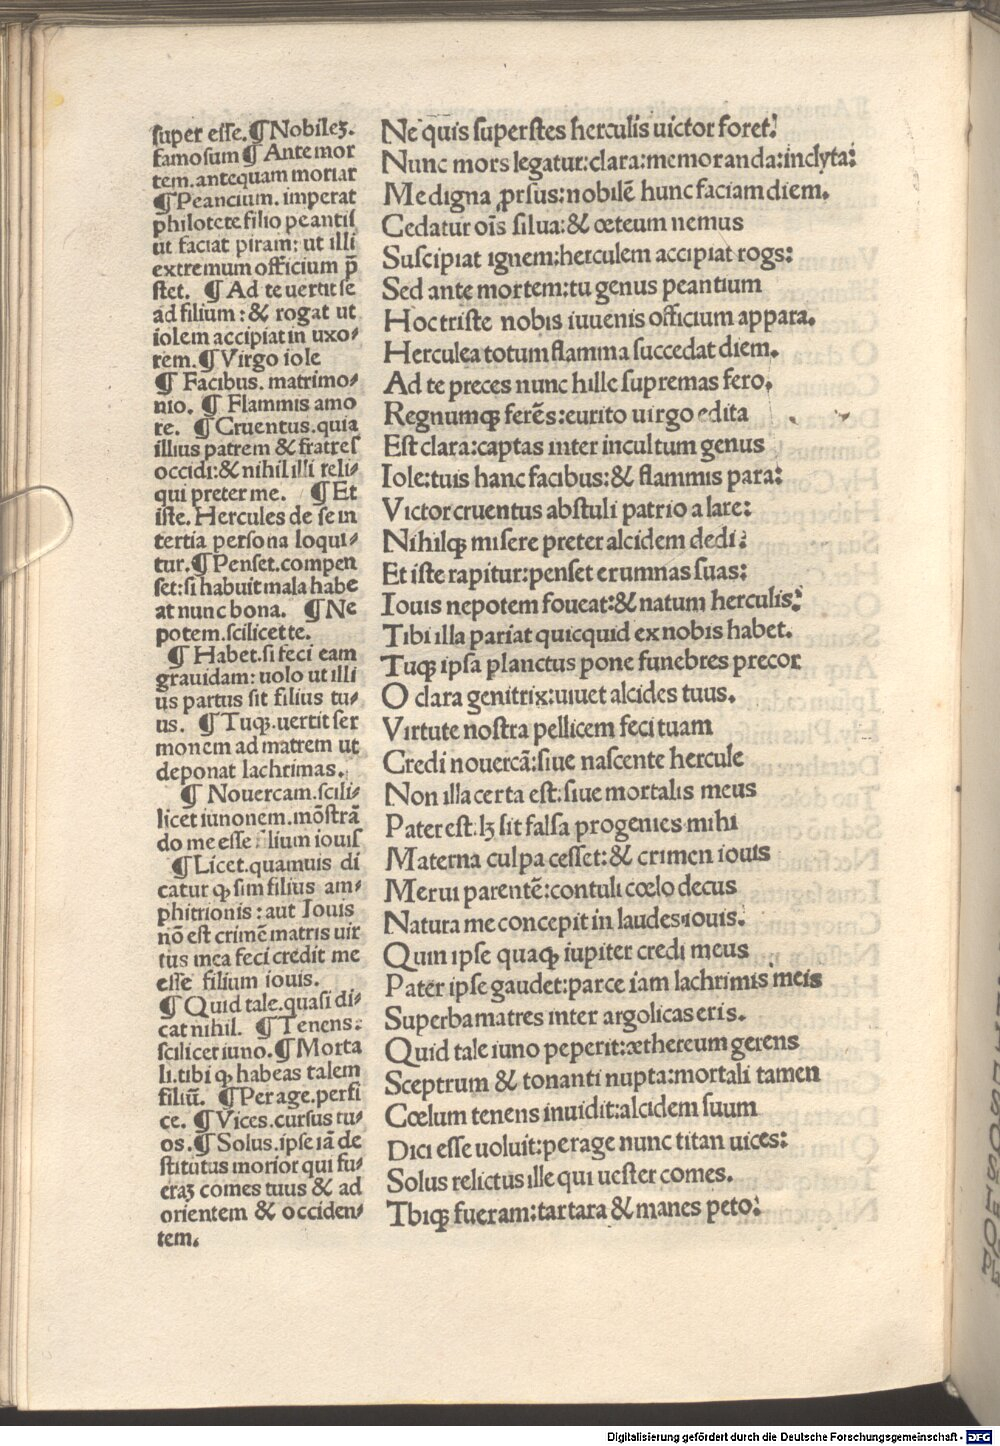 super esse. ¶ Nobileꝫ.
famosum ¶ Ante mor
tem. antequam moriar
¶ Peancium. imperat
philotete filio peantis
ut faciat piram: ut illi
extremum officium p̄
stet. ¶ Ad te uertit se
ad filium: & rogat ut
iolem accipiat in uxo-
rem. ¶ Virgo iole
¶ Facibus. matrimo-
nio. ¶ Flammis amo
re. ¶ Cruentus. quia
illius patrem & fratres
occidi: & nihil illi reli-
qui preter me. ¶ Et
iste. Hercules de se in
tertia persona loqui-
tur. ¶ Penset. compen
set: si habuit mala habe
at nunc bona. ¶ Ne
potem. scilicet te.
¶ Habet. si feci eam
grauidam: uolo ut illi
us partus sit filius tu-
us. ¶ Tuqꝫ. uertit ser
monem ad matrem ut
deponat lachrimas.
¶ Nouercam. scili-
licet iunonem. mōstrā
do me esse filium iouis
¶ Licet. quamuis di
catur ꝙ sim filius am-
phitrionis: aut Iouis
nō est crimē matris uir
tus mea feci credit me
esse filium iouis.
¶ Quid tale. quasi di-
cat nihil. ¶ Tenens:
scilicet iuno. ¶ Morta
li. tibi ꝙ habeas talem
filiū. ¶ Perage. perfi
ce. ¶ Vices. cursus tu-
os. ¶ Solus. ipse iā de
stitutus morior qui fu-
eraꝫ comes tuus & ad
orientem & occiden-
tem.
Ne quis superstes herculis uictor foret:
Nunc mors legatur: clara: memoranda: inclyta:
Me digna ꝓrsus: nobilē hunc faciam diem.
Cedatur oīs silua: & œteum nemus
Suscipiat ignem: herculem accipiat rogs:
Sed ante mortem: tu genus peantium
Hoc triste nobis iuuenis officium appara.
Herculea totum flamma succedat diem.
Ad te preces nunc hille supremas fero.
Regnumqꝫ ferēs: eurito uirgo edita
Est clara: captas inter incultum genus
Iole: tuis hanc facibus: & flammis para:
Victor cruentus abstuli patrio a lare:
Nihilqꝫ misere preter alcidem dedi:
Et iste rapitur: penset erumnas suas:
Iouis nepotem foueat: & natum herculis:
Tibi illa pariat quicquid ex nobis habet.
Tuqꝫ ipsa planctus pone funebres precor
O clara genitrix: uiuet alcides tuus.
Virtute nostra pellicem feci tuam
Credi nouercā: siue nascente hercule
Non illa certa est: siue mortalis meus
Pater est. lꝫ sit falsa progenies mihi
Materna culpa cesset: & crimen iouis
Merui parentē: contuli cœlo decus
Natura me concepit in laudes iouis.
Quin ipse quaqꝫ iupiter credi meus
Pater ipse gaudet: parce iam lachrimis meis
Superba matres inter argolicas eris.
Quid tale iuno peperit: æthereum gerens
Sceptrum & tonanti nupta: mortali tamen
Cœlum tenens inuidit: alcidem suum
Dici esse uoluit: perage nunc titan uices:
Solus relictus ille qui uester comes.
Tbiqꝫ fueram: tartara & manes peto:
Digitalisierung gefördert durch die Deutsche Forschungsgemeinschaft - DFG